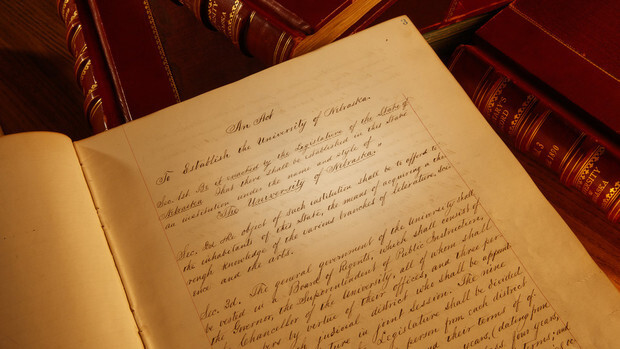 3
An Act
To Establish the University of Nebraska.
Sec. 1st. Be it enacted by the Legislature of the State of
Nebraska That there shall be established in this State
an institution under the name and style of
"The University of Nebraska."
Sec. 2d. The object of such institution shall be to afford to
the inhabitants of this State, the means of acquiring a tho-
rough knowledge of the various branches of literature, Sci-
ence and the arts.
Sec. 3d. The general government of the University shall
be vested in a Board of Regents, which shall consist of
the Governor, the Superintendent of Public Instruction,
the Chancellor of the University, all of whom shall
be members by virtue of their offices, and three per
each judicial district who shall be appoint
Legislature in joint Session. The nine
the Legislature shall be divided
person from each district
and their terms of of-
years, (dating from
four years,
1870